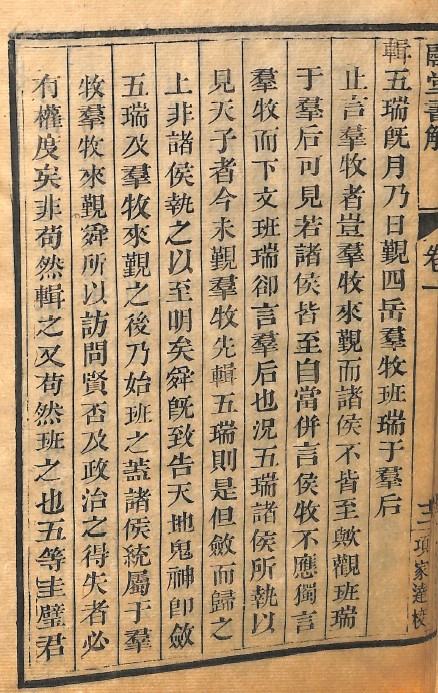 融堂書解
卷一
十二
項家達校
輯五瑞旣月乃日覲四岳羣牧班瑞于羣后
止言羣牧者豈羣牧來覲而諸侯不皆至歟觀班瑞
于羣后可見若諸侯皆至自當併言侯牧不應獨言
羣牧而下文班瑞卻言羣后也況五瑞諸侯所執以
見天子者今未覲羣牧先輯五瑞則是但斂而歸之
上非諸侯執之以至明矣舜旣致告天地鬼神卽斂
五瑞及羣牧來覲之後乃始班之蓋諸侯統屬于羣
牧羣牧來覲舜所以訪問賢否及政治之得失者必
有權度矣非苟然輯之又苟然班之也五等圭璧君